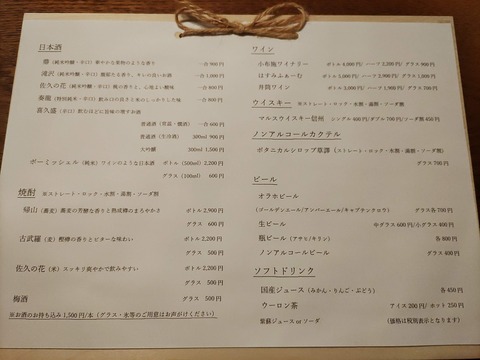 日本酒
(純米吟醸・辛口) 華やかな果物のような香り 一合 900円
滝沢 (純米吟醸・辛口) 一合 1,000円
佐久の花 (純米吟醸・辛口) 一合 800円
秦龍 (特別純米・辛口) 一合 800円
喜久盛 (辛口) 飲むほどに旨味の増すお酒
普通酒 (常温・燗酒) 一合 600円
普通酒 (生冷酒) 300ml 900円
大吟醸 300ml 1,500円
ボーミッシェル (純米) ワインのような日本酒 ボトル (500ml) 2,200円
グラス (100ml) 600円
焼酎 ※ストレート・ロック・水割・湯割・ソーダ割
帰山 (蕎麦) 蕎麦の芳醇な香りと熟成樽のまろやかさ ボトル 2,900円
グラス 600円
古武羅 (麦) 樫樽の香りとビターな味わい ボトル 2,200円
グラス 500円
佐久の花 (米) スッキリ爽やかで飲みやすい ボトル 2,200円
グラス 500円
梅酒 グラス 500円
※お酒のお持ち込み 1,500円/本 (グラス・氷等のご用意はお声がけください)
ワイン
小布施ワイナリー ボトル 4,000円/ ハーフ 2,200円/ グラス 900円
はすみふぁーむ ボトル 5,000円/ ハーフ 2,900円/ グラス 1,000円
井筒ワイン ボトル 3,000円/ ハーフ 1,900円/ グラス 700円
ウイスキー ※ストレート・ロック・水割・湯割・ソーダ割
マルスウイスキー信州 シングル 400円/ダブル 700円/ソーダ割 450円
ノンアルコールカクテル
ボタニカルシロップ草譯 (ストレート・ロック・水割・湯割・ソーダ割)
グラス 700円
ビール
オラホビール
(ゴールデンエール/アンバーエール/キャプテンクロウ) グラス各 700円
生ビール 中グラス 600円/小グラス 400円
瓶ビール (アサヒ/キリン) 各 800円
ノンアルコールビール グラス 400円
ソフトドリンク
国産ジュース (みかん・りんご・ぶどう) 各 450円
ウーロン茶 アイス 200円/ ホット 250円
紫蘇ジュース or ソーダ (価格は税別表示となります)